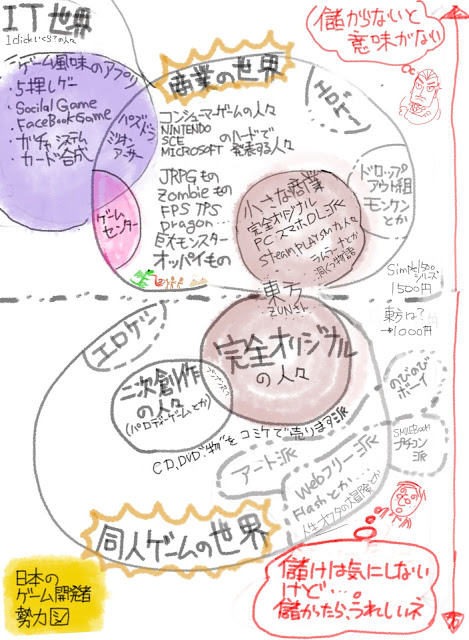 IT世界
1clickいくら?の人々
ゲーム風味のアプリ
・5押しゲー
・Socilal Game
・FaceBookGame
・ガチャシステム
・カード合成
パズドラ
ミリオン
アーサー
商業の世界
エロゲー
コンシューマゲームの人々
NINTENDO
SCE
MICROSOFT
のハードで
発表する人々
JRPGもの
Zombieもの
FPS TPS
Dragon...
巨大モンスター
オッパイもの
ゲーム
センター
小さな商業
完全オリジナル
PC スマホ DL 派
steam PLAYismの人々
ドロップ
アウト組
モンケン
とか
儲からないと
意味がない
Simple1500
シリーズ
1500円
東方
ZUNさん
東方は?
→1000円
エロゲー
完全オリジナル
の人々
二次創作
の人々
(パロディーゲームとか)
CD,DVD"物"をコミケで売ります派
のびのび
ボーイ
SMILEBoom
プチコン
派
アート派
Webフリー派
Flashとか
人生オワタの大冒険とか
同人ゲームの世界
日本の
ゲーム開発者
勢力図
儲けは気にしない
けど…。
儲かったら、うれしいネ